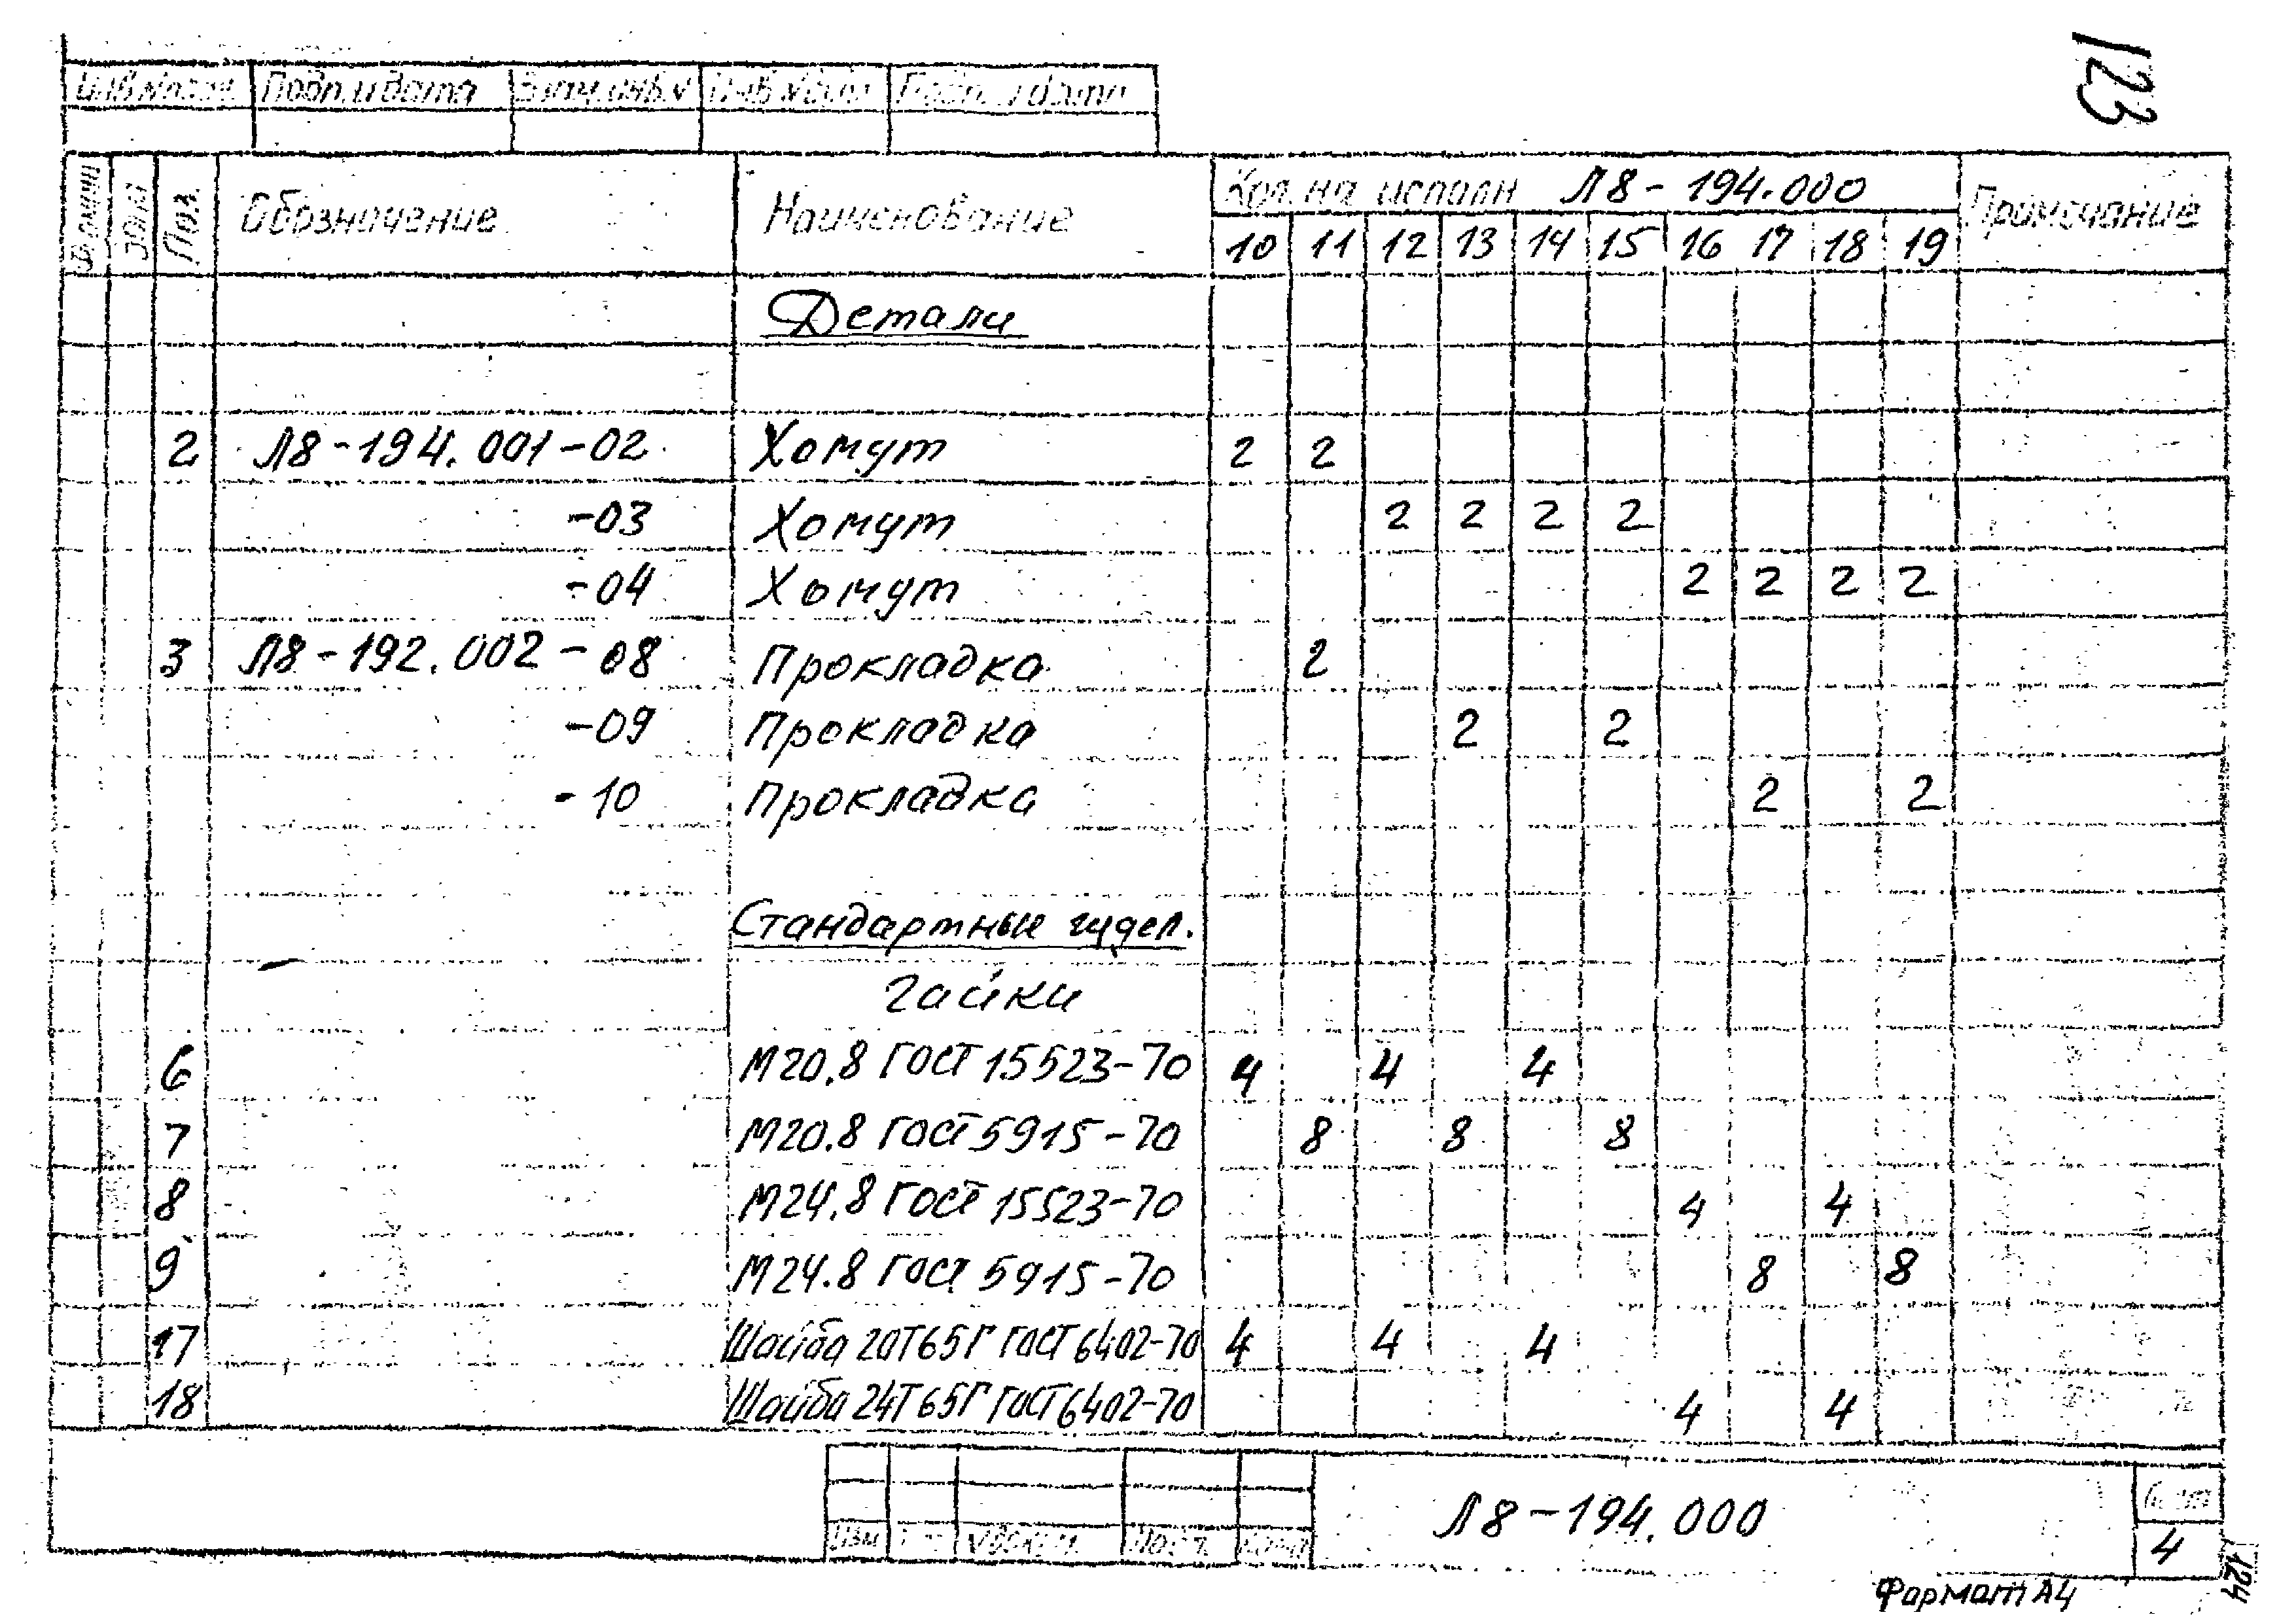 123
Подп. и дата
Формат Зона Поз. Обозначение Наименование Кол. на исполн Л8-194.000 Примечание
10 11 12 13 14 15 16 17 18 19
Детали
2 Л8-194.001-02 Хомут 2 2
-03 Хомут 2 2 2 2
-04 Хомут 2 2 2 2
3 Л8-192.002-08 Прокладка 2
-09 Прокладка 2 2
-10 Прокладка 2 2
Стандартные издел.
Гайки
6 М20.8 ГОСТ 15523-70 4 4 4
7 М20.8 ГОСТ 5915-70 8 8 8
8 М24.8 ГОСТ 15523-70 4 4
9 М24.8 ГОСТ 5915-70 8 8
17 Шайба 20Т65Г ГОСТ 6402-70 4 4 4
18 Шайба 24Т65Г ГОСТ 6402-70 4 4
Л8-194.000
Лист
4
Изм
124
Формат А4